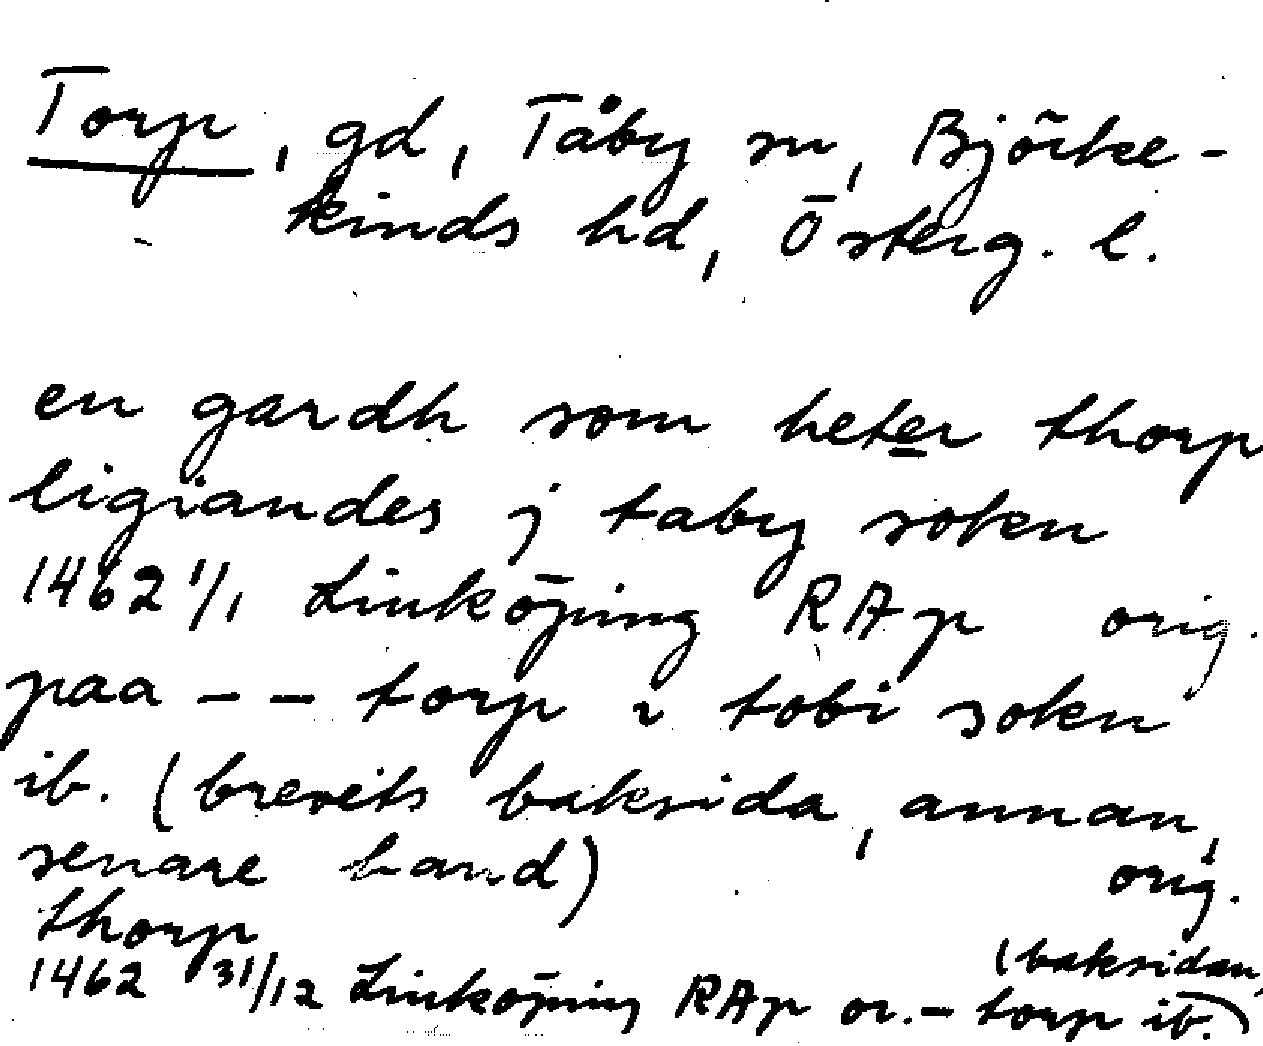 Torp, gd, Tåby sn, Björke-
kinds hd, Österg. l.
en gardh som heter thorp
ligiandes j taby sokn
1462 1/1 Linköping RAp orig.
paa -- torp i tobi sokn
ib. (brevets baksida, annan,
senare hand) orig.
thorp
1462 31/12 Linköping RAp or. - torp ib.
(baksidan,